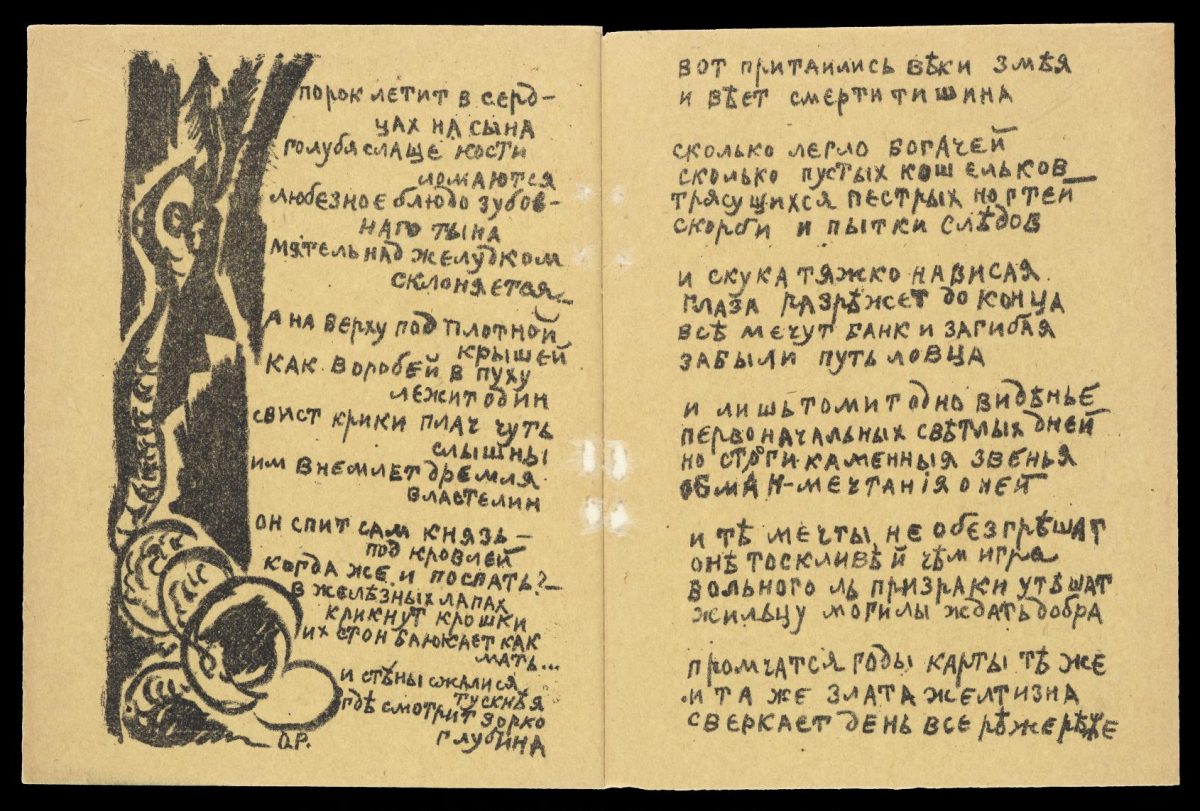 порок летит в серд-
цах на сына
голубя слаще кости
ломаются
любезное блюдо зубов-
наго тына
мятель над желудком
склоняется...
а на верху под плотной
крышей
как воробей в пуху
лежит один
свист крики плач чуть
слышны
им внемлет дремля
властелин
он спит сам князь —
под кровлей
когда же и поспать?—
в желѣзных лапах
крикнут крошки
их стон баюкает как
мать...
и стѣны сжалися
тускнѣя
гдѣ смотрит зорко
глубина
О.Р.
вот притаились вѣки змѣя
и вѣет смерти тишина
сколько легло богачей
сколько пустых кошельков
трясущихся пестрых ногтей
скорби и пытки слѣдов
и скука тяжко нависая
глаза разрѣжет до конца
всѣ мечут банк и загибая
забыли путь ловца
и лишь томит одно видѣнье
первоначальных свѣтлых дней
но строги каменныя звенья
обман-мечтанія о ней
и тѣ мечты не обезгрѣшат
онѣ тоскливѣй чѣм игра
вольного ль призраки утѣшат
жильцу могилы ждать добра
промчатся годы карты тѣ же
и та же злата желтизна
сверкает день все рѣже рѣже